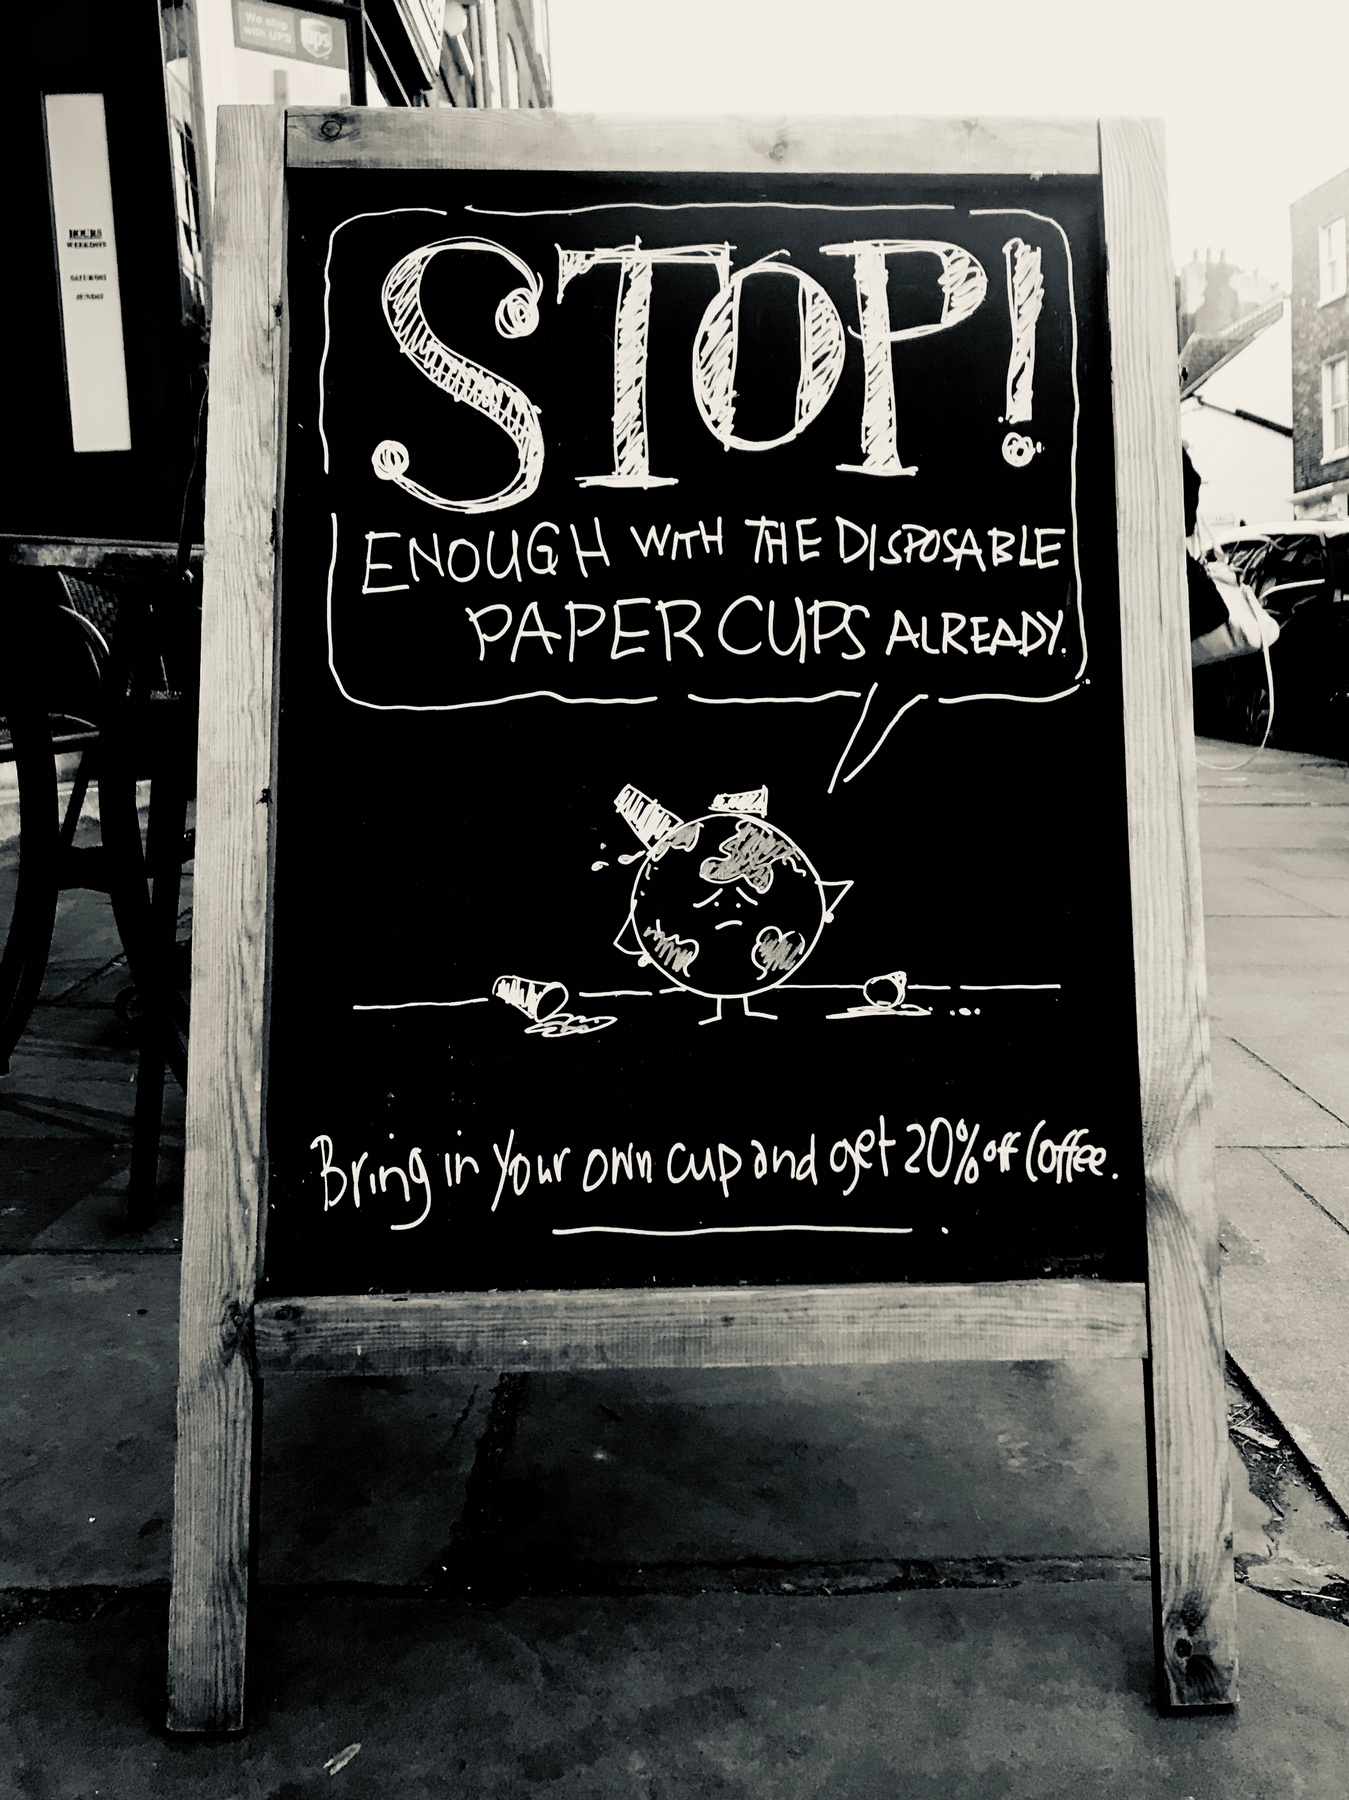 We ship
with UPS
ups
HOURS
WEEKDAYS
SATURDAY
SUNDAY
STOP!
ENOUGH WITH THE DISPOSABLE
PAPER CUPS ALREADY.
Bring in your own cup and get 20% off Coffee.